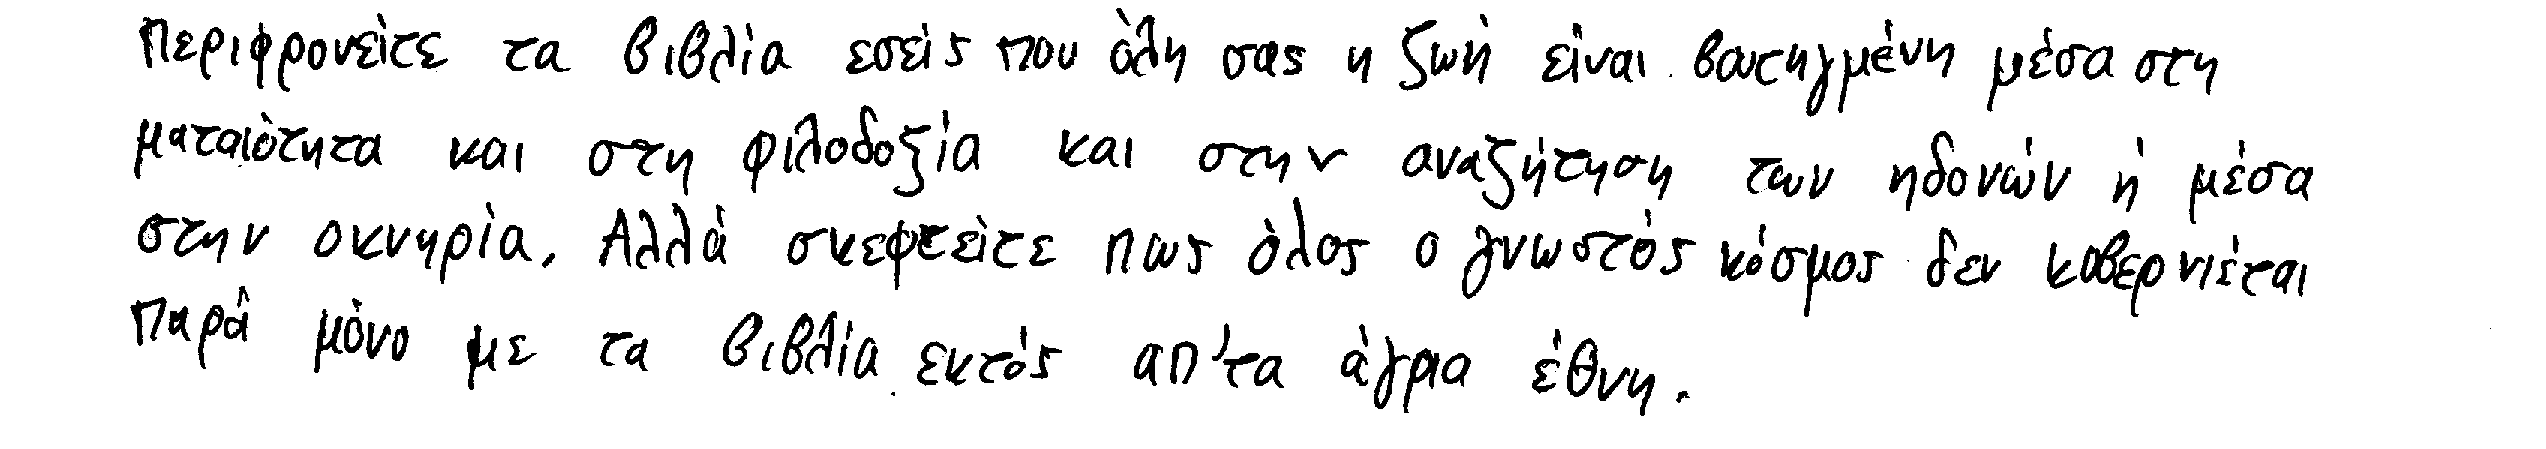 Περιφρονείτε τα βιβλία εσείς που όλη σας η ζωή είναι βουτηγμένη μέσα στη
ματαιότητα και στη φιλοδοξία και στην αναζήτηση των ηδονών ή μέσα
στην οκνηρία. Αλλά σκεφτείτε πως όλος ο γνωστός κόσμος δεν κυβερνιέται
παρά μόνο με τα βιβλία εκτός απ'τα άγρια έθνη.